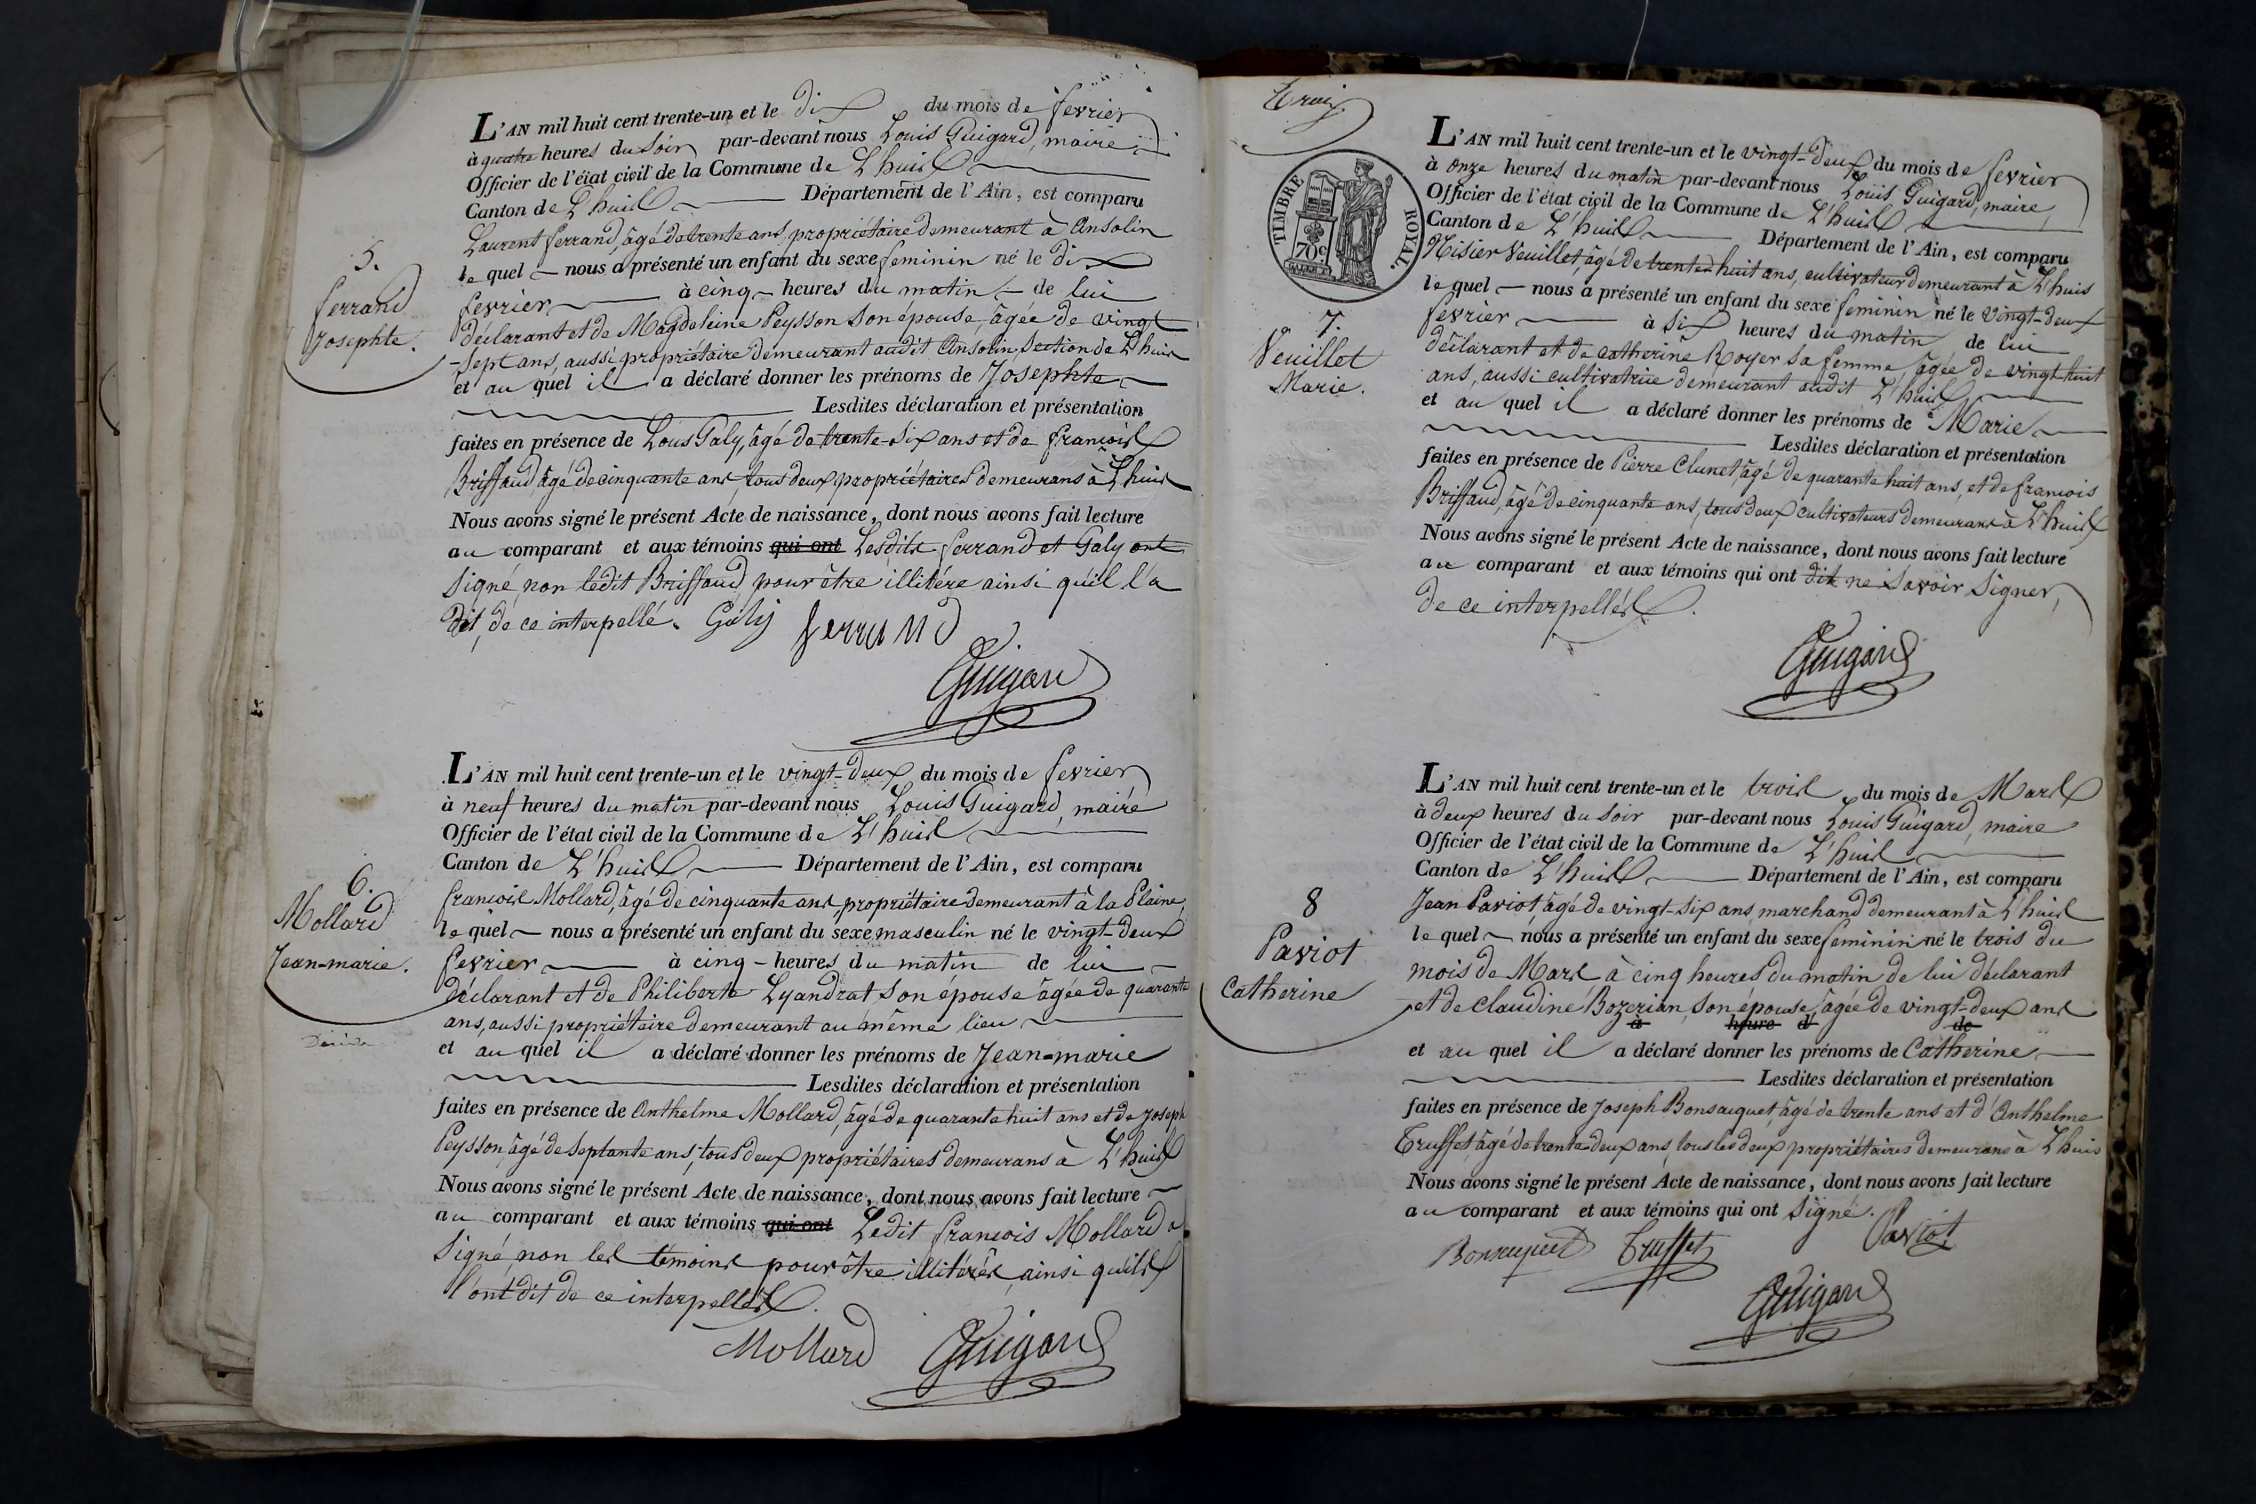 L'AN mil huit cent trente-un et le dix du mois de fevrier
à quatre heures du soir par-devant nous Louis Guigard, maire
Officier de l'état civil de la Commune de L'huis
Canton de L'huis Département de l'Ain, est comparu
Laurent ferrand, âgé de trente ans, propriétaire demeurant à Ansolin
le quel nous a présenté un enfant du sexe feminin né le dix
fevrier à cinq heures du matin de lui
déclarant et de Magdeleine Peysson son épouse, âgée de vingt
-sept ans, aussi propriétaire demeurant audit Ansolin, section de L'huis
et au quel il a déclaré donner les prénoms de Josephte
Lesdites déclaration et présentation
faites en présence de Lous Galy, âgé de trente-six ans et de francois
Briffaud, âgé de cinquante ans, tous deux propriétaires demeurans à L'huis
Nous avons signé le présent Acte de naissance, dont nous avons fait lecture
au comparant et aux témoins qui ont Lesdits ferrand et Galy ont
signé, non ledit Briffaud, pour être illitére ainsi qu'il l'a
dit, de ce interpellé. Galy ferrand
Guigard
5.
ferrand
Josephte.
L'AN mil huit cent trente-un et le vingt-deux du mois de fevrier
à neuf heures du matin par-devant nous Louis Guigard, maire
Officier de l'état civil de la Commune de L'huis
Canton de L'huis Département de l'Ain, est comparu
francois Mollard, âgé de cinquante ans, propriétaire demeurant à la Plaine,
le quel nous a présenté un enfant du sexe masculin né le vingt-deux
fevrier à cinq heures du matin de lui
déclarant et de Philiberte Lyandrat son épouse âgée de quarante
ans, aussi propriétaire demeurant au même lieu
et au quel il a déclaré donner les prénoms de Jean-marie
Lesdites déclaration et présentation
faites en présence de Anthelme Mollard, âgé de quarante huit ans et de Joseph
Peysson, âgé de septante ans, tous deux propriétaires demeurans à L'huis
Nous avons signé le présent Acte de naissance, dont nous avons fait lecture
au comparant et aux témoins qui ont Ledit francois Mollard a
signé, non les témoins pour être illitérés, ainsi qu'ils
l'ont dit de ce interpellés.
Mollard Guigard
6.
Mollard
Jean-marie.
Trois.
TIMBRE ROYAL.
70c
L'AN mil huit cent trente-un et le vingt-deux du mois de fevrier
à onze heures du matin par-devant nous Louis Guigard, maire,
Officier de l'état civil de la Commune de L'huis
Canton de L'huis Département de l'Ain, est comparu
Nisier Veuillet, âgé de trente huit ans, cultivateur demeurant à L'huis
le quel nous a présenté un enfant du sexe feminin né le vingt-deux
fevrier à six heures du matin de lui
déclarant et de catherine Royer sa femme, âgée de vingt huit
ans, aussi cultivatrice demeurant audit L'huis
et au quel il a déclaré donner les prénoms de Marie
Lesdites déclaration et présentation
faites en présence de Pierre Clunet, âgé de quarante huit ans, et de francois
Briffaud, âgé de cinquante ans, tous deux cultivateurs demeurans à L'huis
Nous avons signé le présent Acte de naissance, dont nous avons fait lecture
au comparant et aux témoins qui ont dit ne savoir signer,
de ce interpellés.
Guigard
7.
Veuillet
Marie.
L'AN mil huit cent trente-un et le trois du mois de Mars
à deux heures du soir par-devant nous Louis Guigard, maire
Officier de l'état civil de la Commune de L'huis
Canton de L'huis Département de l'Ain, est comparu
Jean Paviot, âgé de vingt-six ans, marchand demeurant à L'huis
le quel nous a présenté un enfant du sexe feminin né le trois du
mois de Mars à cinq heures du matin de lui déclarant
et de claudine Bozerian, son épouse, âgée de vingt-deux ans
à heure d de
et au quel il a déclaré donner les prénoms de Catherine
Lesdites déclaration et présentation
faites en présence de Joseph Bonsaquet, âgé de trente ans et d'Anthelme
Truffet, âgé de trente-deux ans, tous les deux propriétaires demeurans à L'huis
Nous avons signé le présent Acte de naissance, dont nous avons fait lecture
au comparant et aux témoins qui ont signé. Paviot
Bonsaquet Truffet
Guigard
8
Paviot
Catherine